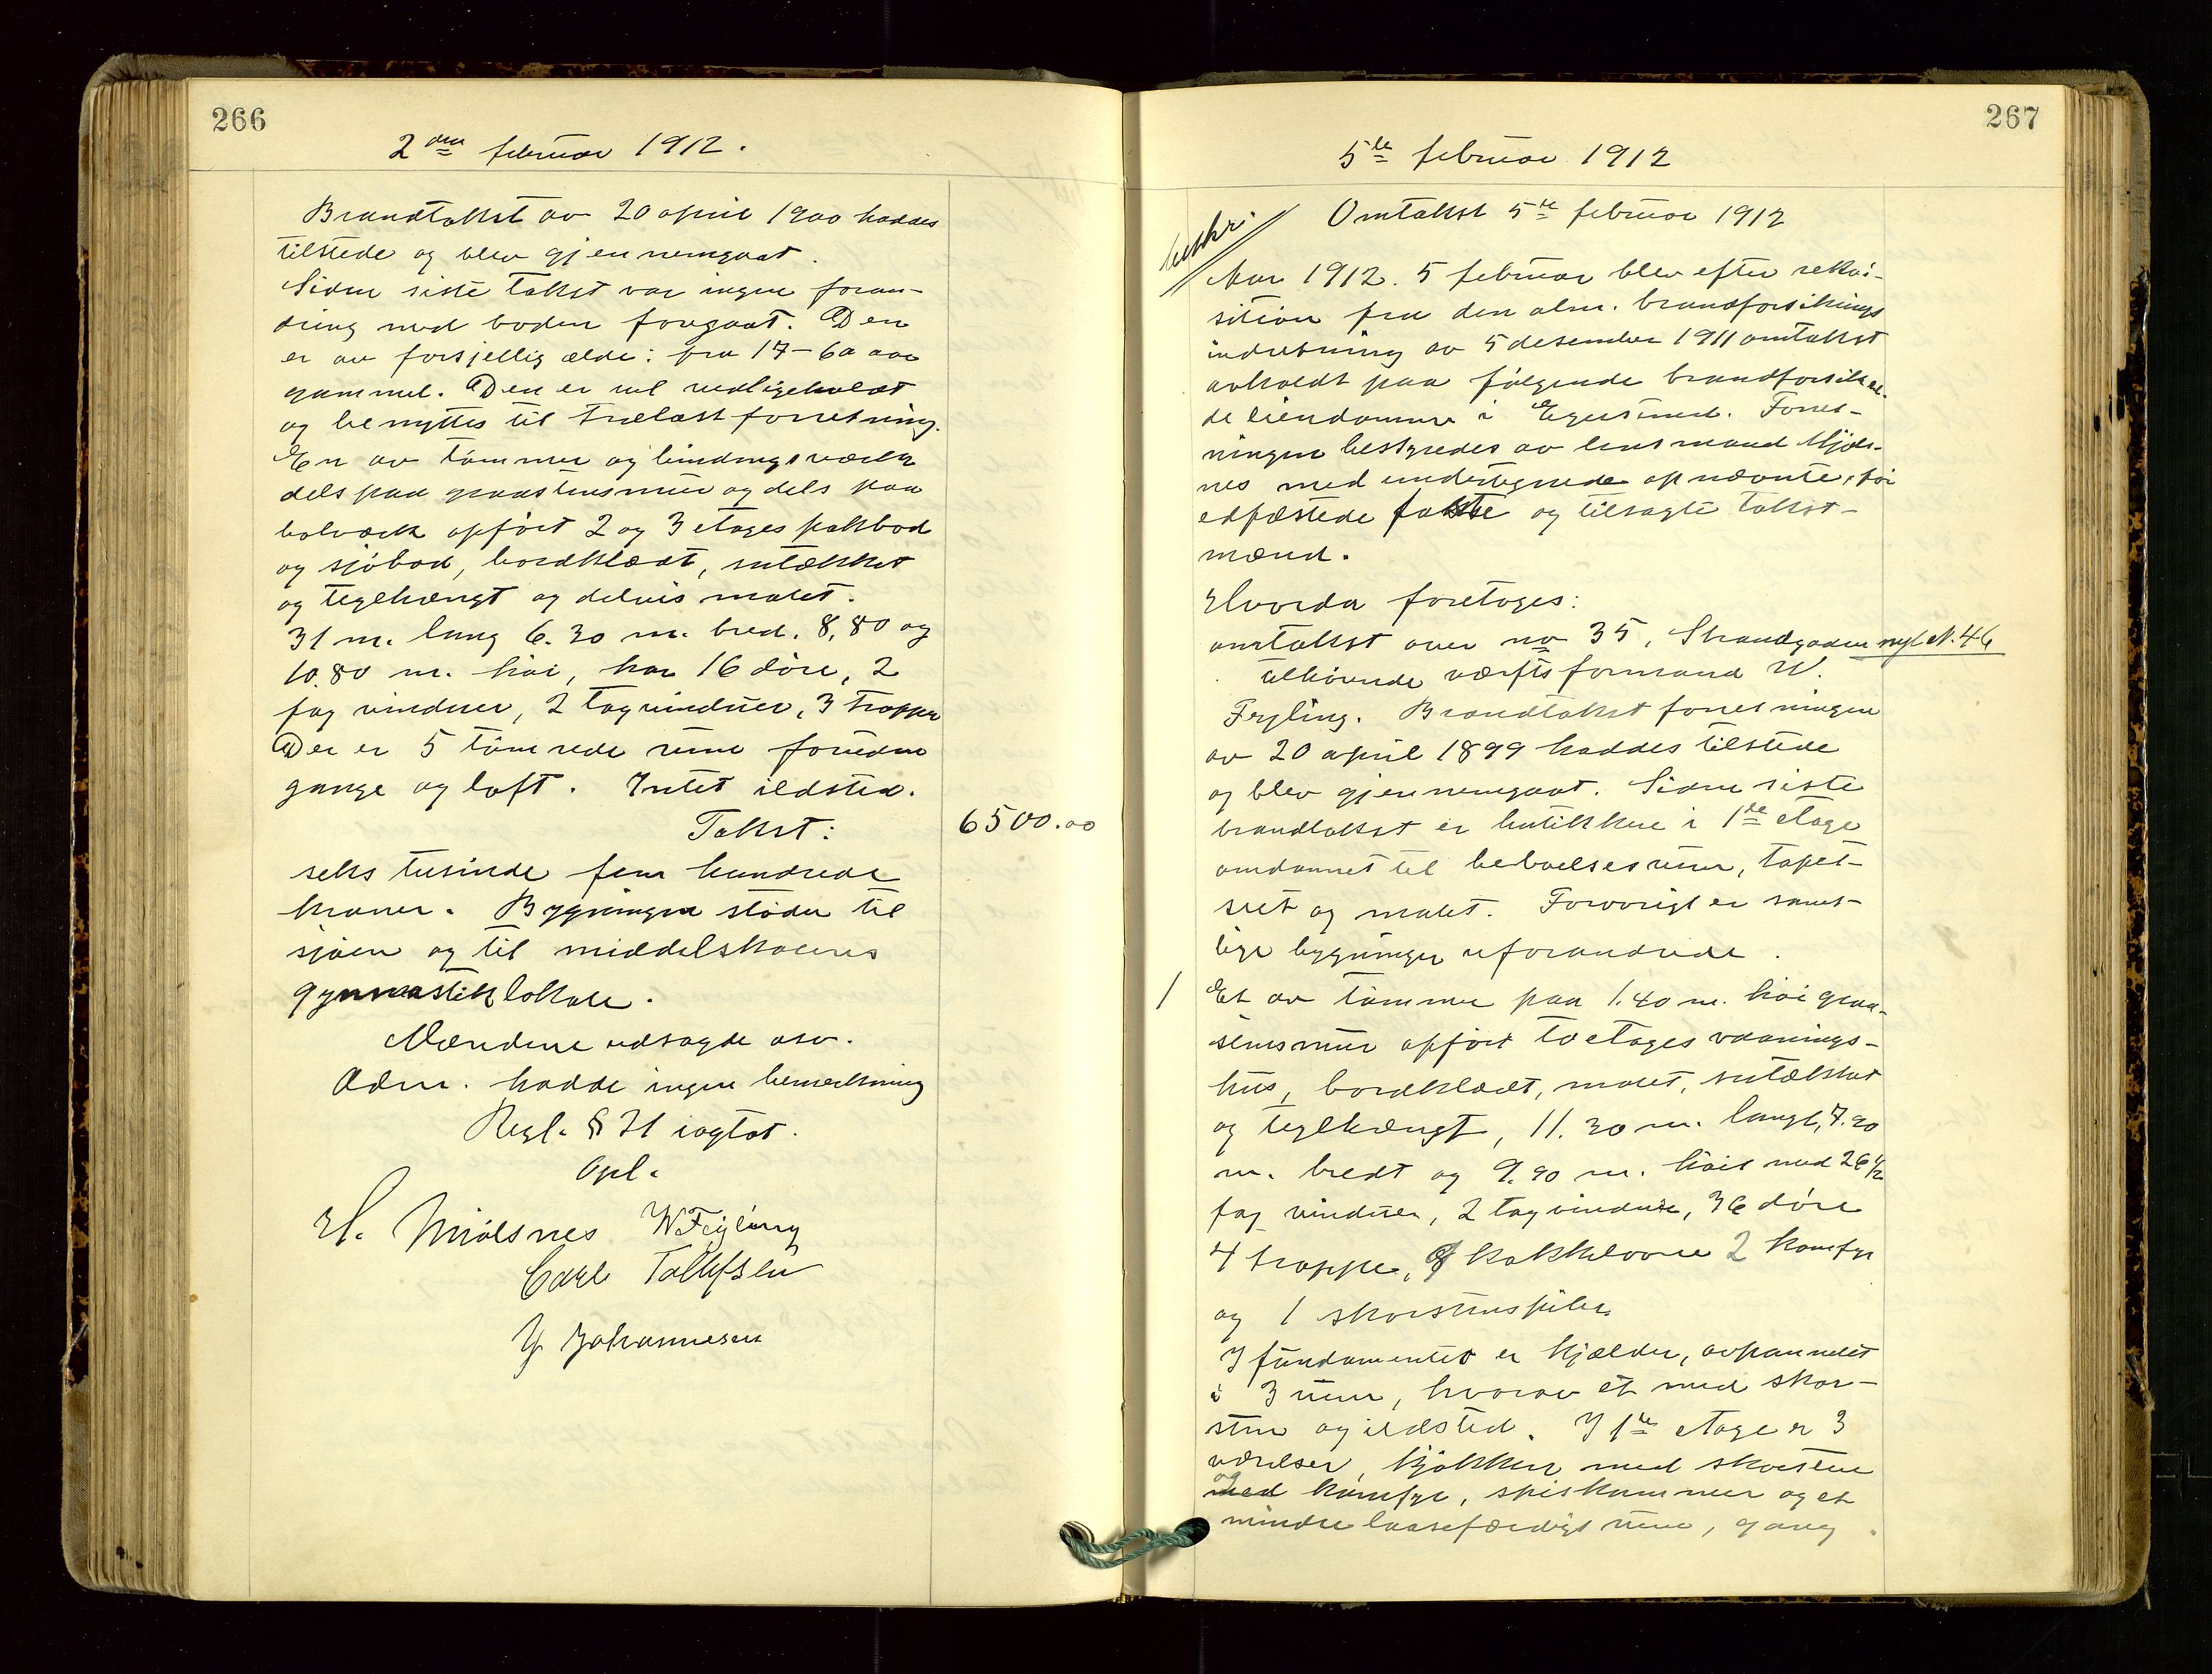 266
2den februar 1912.
Brandtakst av 20 april 1900 haddes
tilstede og blev gjennemgaat.
Siden siste takst var ingen foran-
dring med boden foregaat. Den
er av forsjellig ælde: fra 17-60 aar
gammel. Den er vel vedligeholdt
og benyttes til trælastforretning.
En av tømmer og bindingsværk
dels paa graastensmur og dels paa
bolverk opført 2 og 3 etages pakbod
og sjøbod, bordklædt, sutækket
og teglhængt og delvis malet.
31 m. lang 6.30 m. bred. 8,80 og
10.80 m. høi, har 16 døre, 2
fag vinduer, 2 tagvinduer, 3 trapper
Der er 5 tømrede rum foruden
gange og loft. Intet ildsted.
Takst: 6500.00
seks tusinde fem hundrede
kroner. Bygningen støder til
sjøen og til middelskolens
gymnastiklokale.
Mændene utsagde osv.
Adm. hadde ingen bemerkning
Regl. § 31 iagtat.
Opl.
H. Mjølsnes W Fryling
Carl Tollefsen
Y. Johannesen
267
5te februar 1912
beskr.
Omtakst 5te februar 1912
Aar 1912. 5 februar blev efter rekvi-
sition fra den alm. brandforsikrings
indretning av 5 desember 1911 omtakst
avholdt paa følgende brandforsikre-
de eiendomme i Egersund. Forret-
ningen bestyredes av lensmand Mjøls-
nes med undertegnede opnævnte, før
edfæstede faste og tilsagte takst-
mænd.
Hvorda foretoges:
omtakst over no 35, Strandgaden nyt N. 46
tilhørende værftsformand W.
Fryling. Brandtakstforretningen
av 20 april 1899 haddes tilstede
og blev gjennemgaat. Siden siste
brandtakst er butikken i 1ste etage
omdannet til beboelsesrum, tapet-
seret og malet. Forøvrigt er samt-
lige bygninger uforandrede.
1 Et av tømmer paa 1.40 m. høi graa-
stensmur opført toetages vaanings-
hus, bordklædt, malet, sutækket
og teglhængt, 11.30 m. langt, 7.90
m. bredt og 9.90 m. høit med 26 1/2
fag vinduer, 2 tagvinduer, 36 døre
4 trapper, 8 kakkelovne 2 komfyr
og 1 skorstenspiber.
I fundamentet er kjælder, avpanelet
i 3 rum, hvorav et med skor-
sten og ildsted. I 1ste etage er 3
værelser, kjøkken med skorsten
og
med komfyr, spiskammer og et
mindre laasefærdigt rum, gang